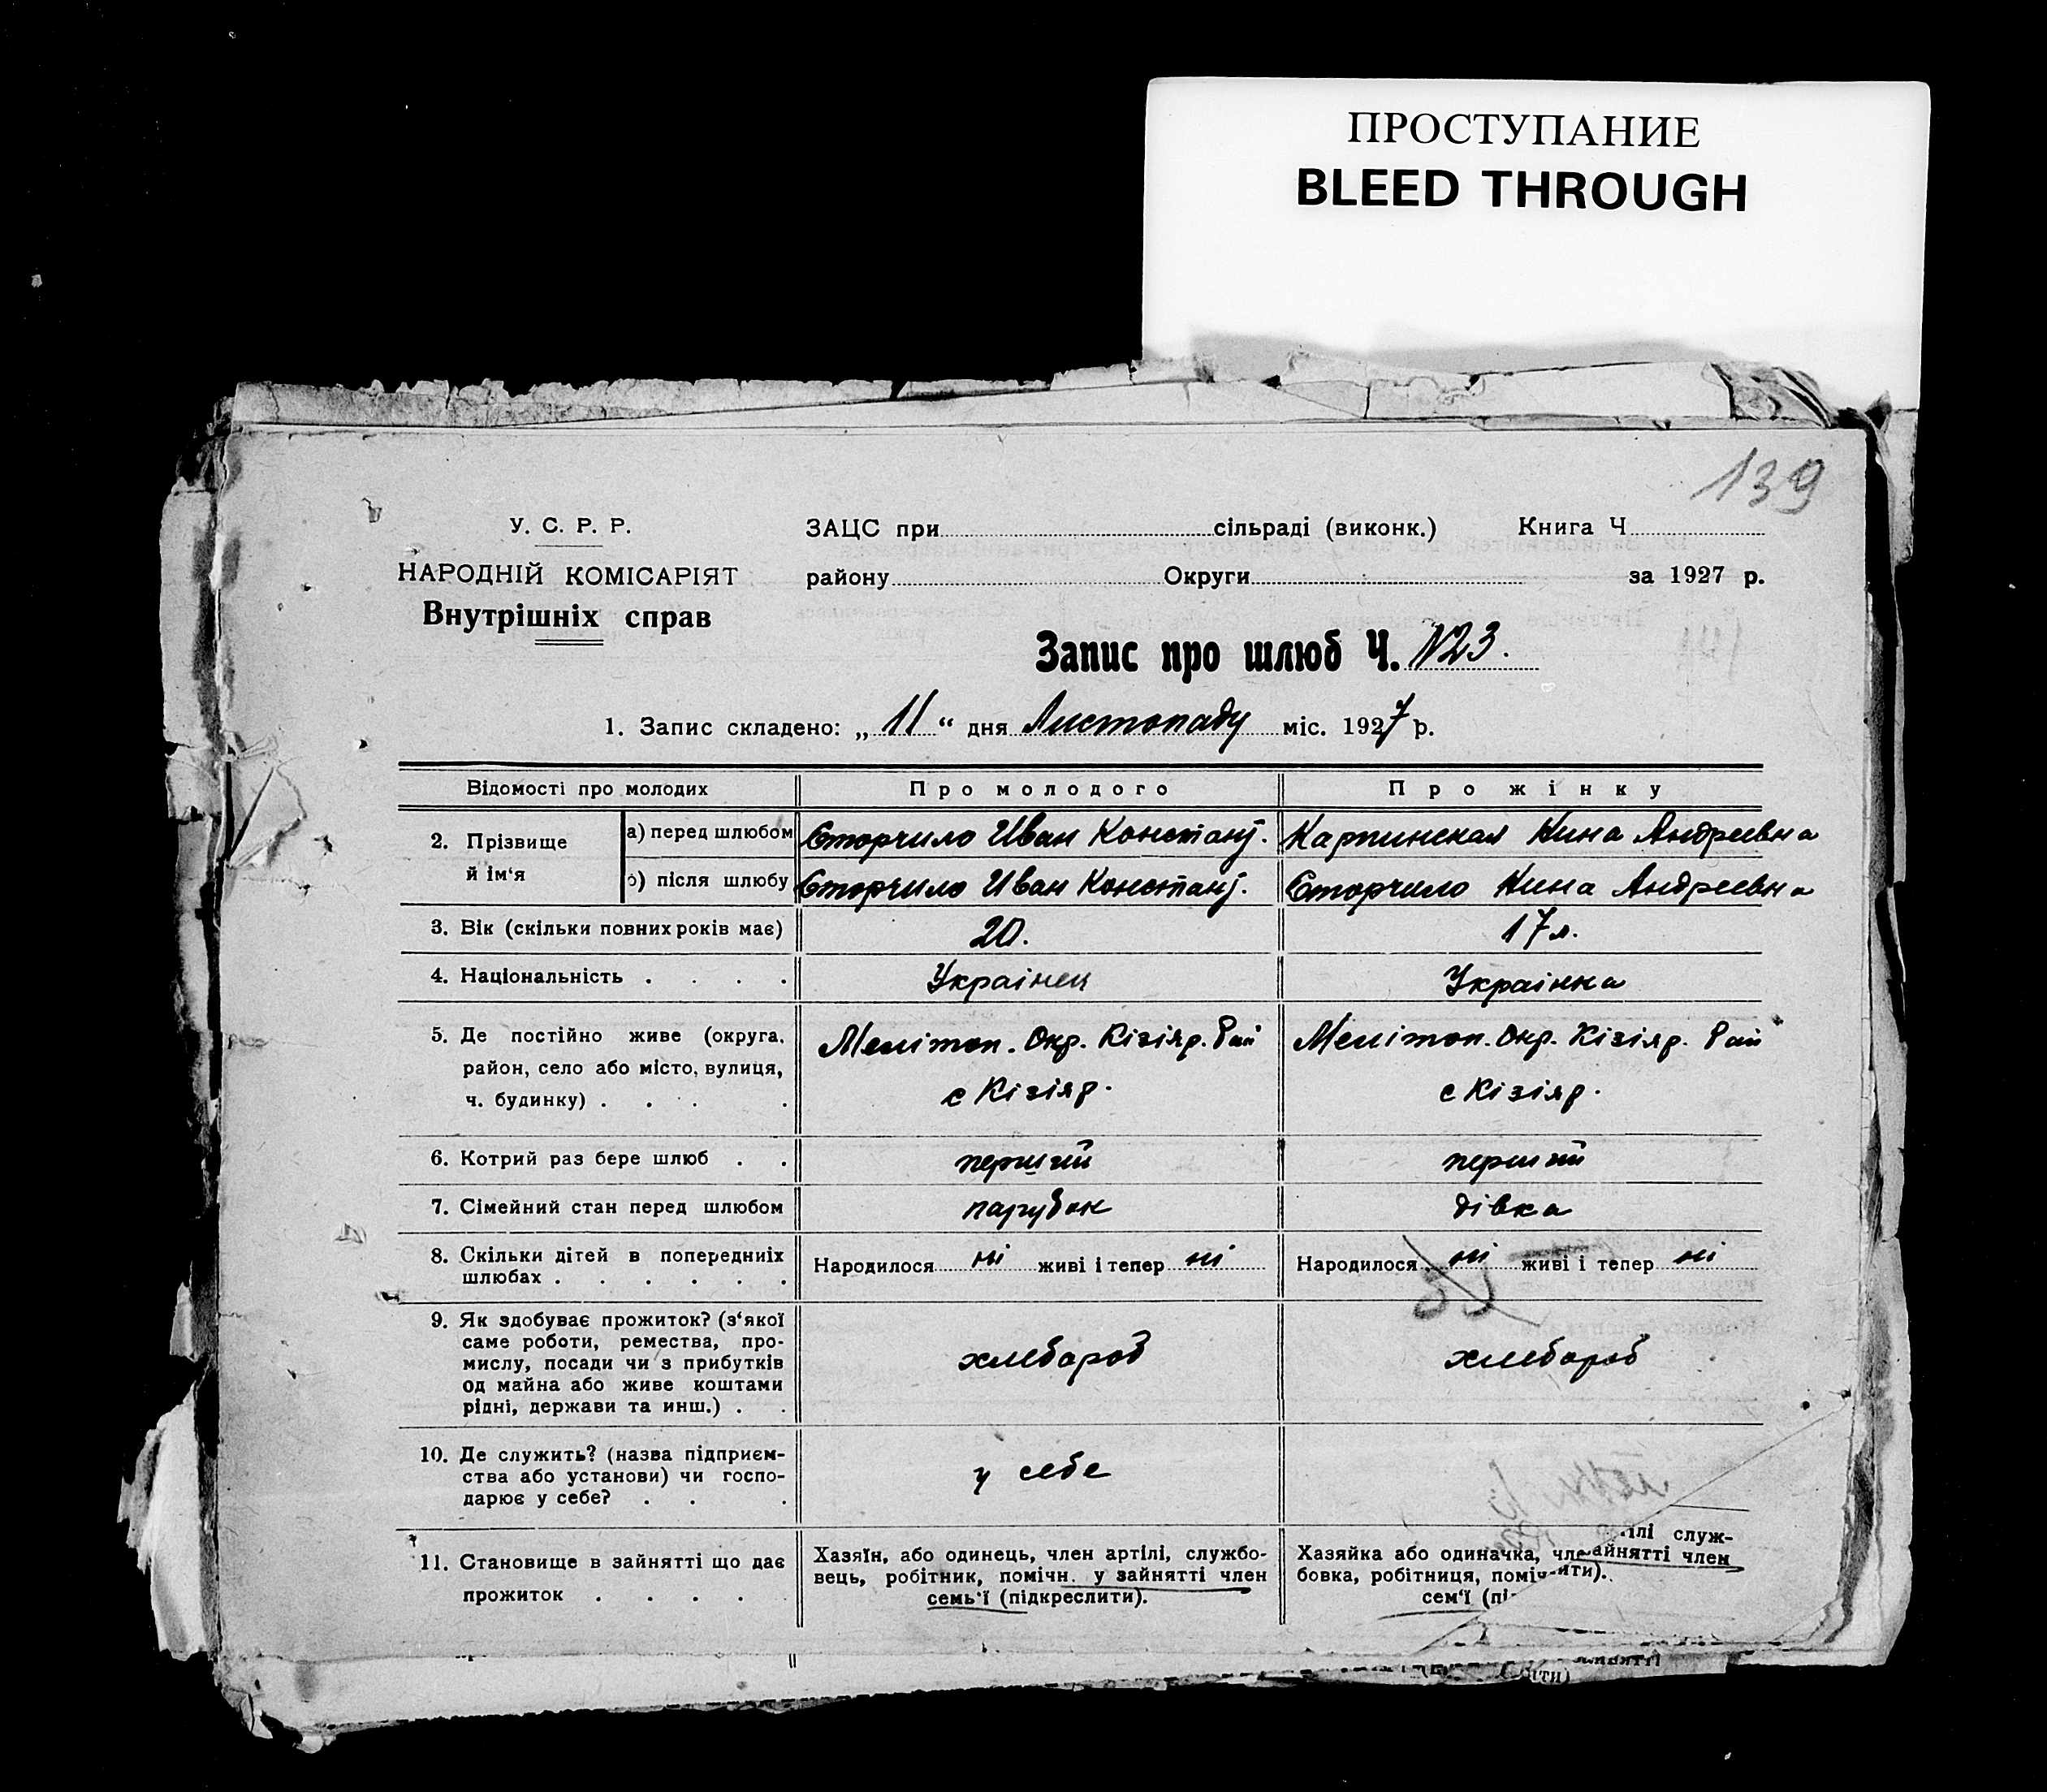 ПРОСТУПАНИЕ
BLEED THROUGH
139
У. С. Р. Р.
НАРОДНІЙ КОМІСАРІЯТ
Внутрішніх справ
ЗАЦС при сільраді (виконк.) Книга Ч
району Округи за 1927 р.
Запис про шлюб Ч. N23.
1. Запис складено: „ 11 “ дня Листопаду міс. 1927 р.
Відомості про молодих Про молодого Про жінку
2. Прізвище й ім‘я
а) перед шлюбом Сторчило Иван Констант. Карпинская Нина Андреевна
б) після шлюбу Сторчило Иван Констант. Сторчило Нина Андреевна
3. Вік (скільки повних років має) 20. 17 л.
4. Національність . . . . Украінец Украінка
5. Де постійно живе (округа, Мелітоп. Окр. Кізіяр. Рай Мелітоп. Окр. Кізіяр. Рай
район, село або місто, вулиця, с Кізіяр. с Кізіяр.
ч. будинку) . . . .
6. Котрий раз бере шлюб . . перший перший
7. Сімейний стан перед шлюбом парубок дівка
8. Скільки дітей в попередниіх Народилося ні живі і тепер ні Народилося ні живі і тепер ні
шлюбах . . . . . .
9. Як здобуває прожиток? (з‘якої
саме роботи, ремества, про-
мислу, посади чи з прибутків хлебороб хлебороб
од майна або живе коштами
рідні, держави та инш.) . .
10. Де служить? (назва підприєм-
ства або установи) чи госпо- у себе
дарює у себе? . . .
11. Становище в зайнятті що дає
прожиток . . . .
Хазяїн, або одинець, член артілі, службо-
вець, робітник, помічн. у зайнятті член
семь‘ї (підкреслити).
Хазяйка або одиначка, чле
ілі служ-
бовка, робітниця, поміч
айнятті член
сем‘ї (пі
ити).